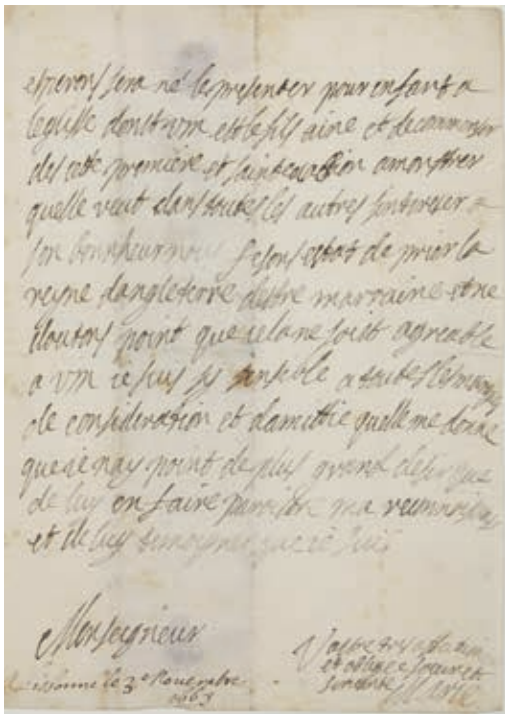 esperons sera né le presenter pour enfant a
leglise dont vm est le fils aine et de commencer
des cette premiere et sainte action a monstrer
quelle veut dans toutes les autres sinteresser a
son bonnheur nous fesons estat de prier la
reyne dangleterre destre marraine et ne
doutons point que cela ne soit agreable
a vm ie suis sy sensible a toutes les marques
de consideration et damittie quelle me donne
que ie nay point de plus grand desir que
de luy en faire paroitre ma reconnoissance
et de luy temoigner que ie suis
Monseigneur
Vostre tres affectionnée
et obligée soeur et
servante Marie
Lisbonne le 3e Novembre